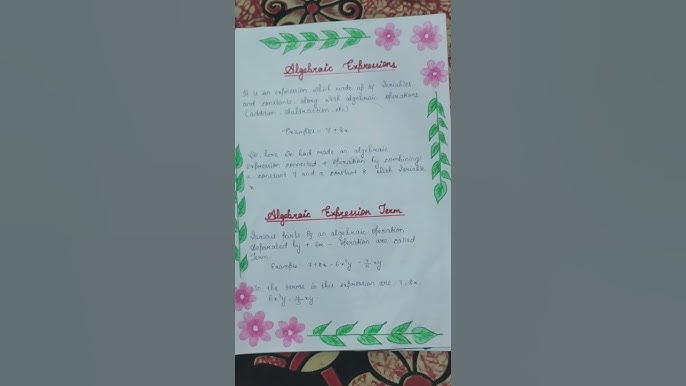 Algebraic Expressions
It is an expression which made up of Variables
and constants, along with algebraic operations
(addition, Subtraction, etc)
Example:- 7 + 8x
So, here we had made an algebraic
expression connected + operation by combining
a constant 7 and a constant 8 with Variable
x
Algebraic Expression Term
Various parts of an algebraic operation
Seperated by + or - operation are called
Term.
Example:- 7 + 8x - 6x²y - xy
So, the terms in this expression are 7, 8x
6x²y, xy